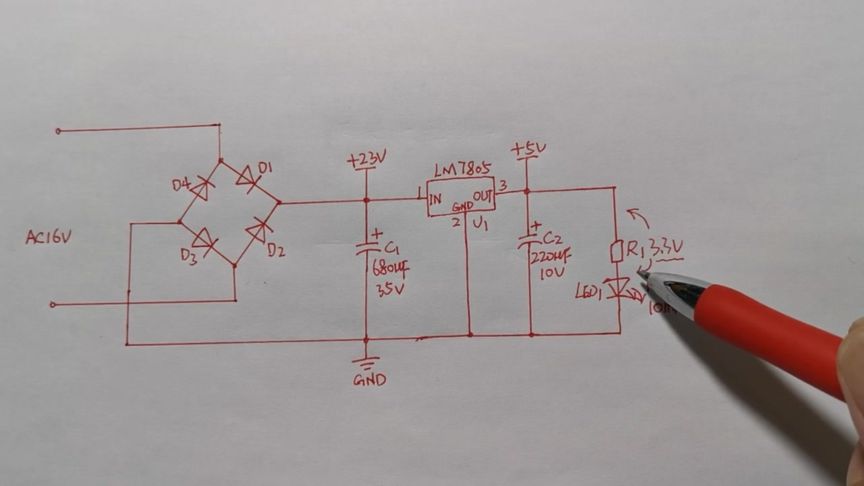 AC16V
D4
D1
D3
D2
+23V
+
C1
680uF
35V
GND
LM7805
1
IN
OUT
3
GND
2
U1
+5V
+
C2
220uF
10V
R1
3.3V
LED1